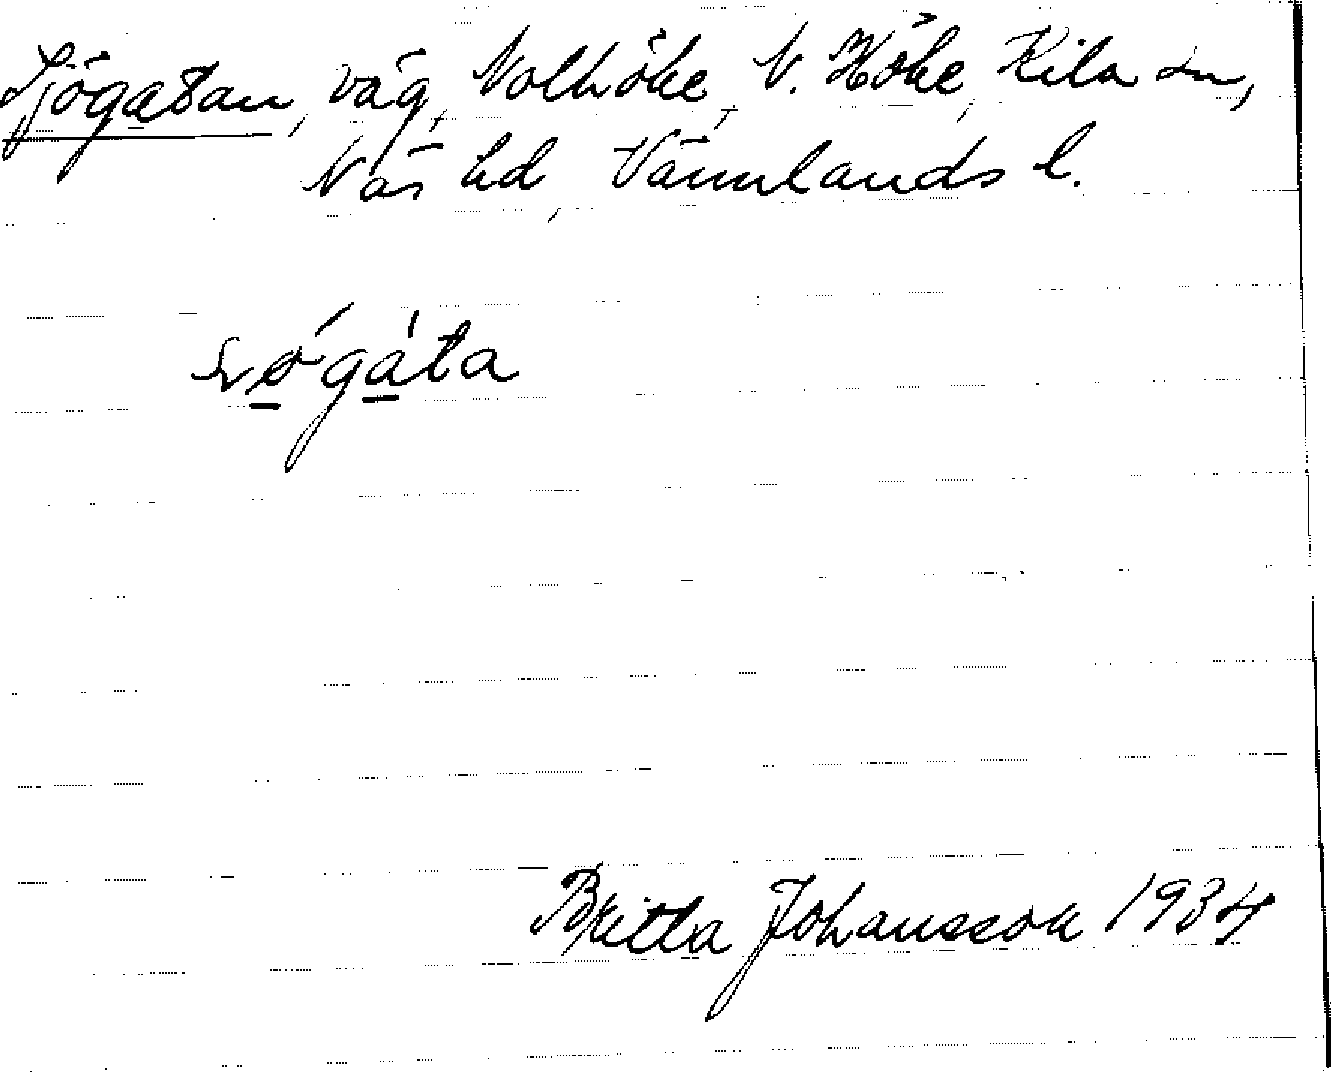 Sjögatan, väg, Nolhöke, N. Höke, Kila sn,
Näs hd, Värmlands l.
Britta Johansson 1934